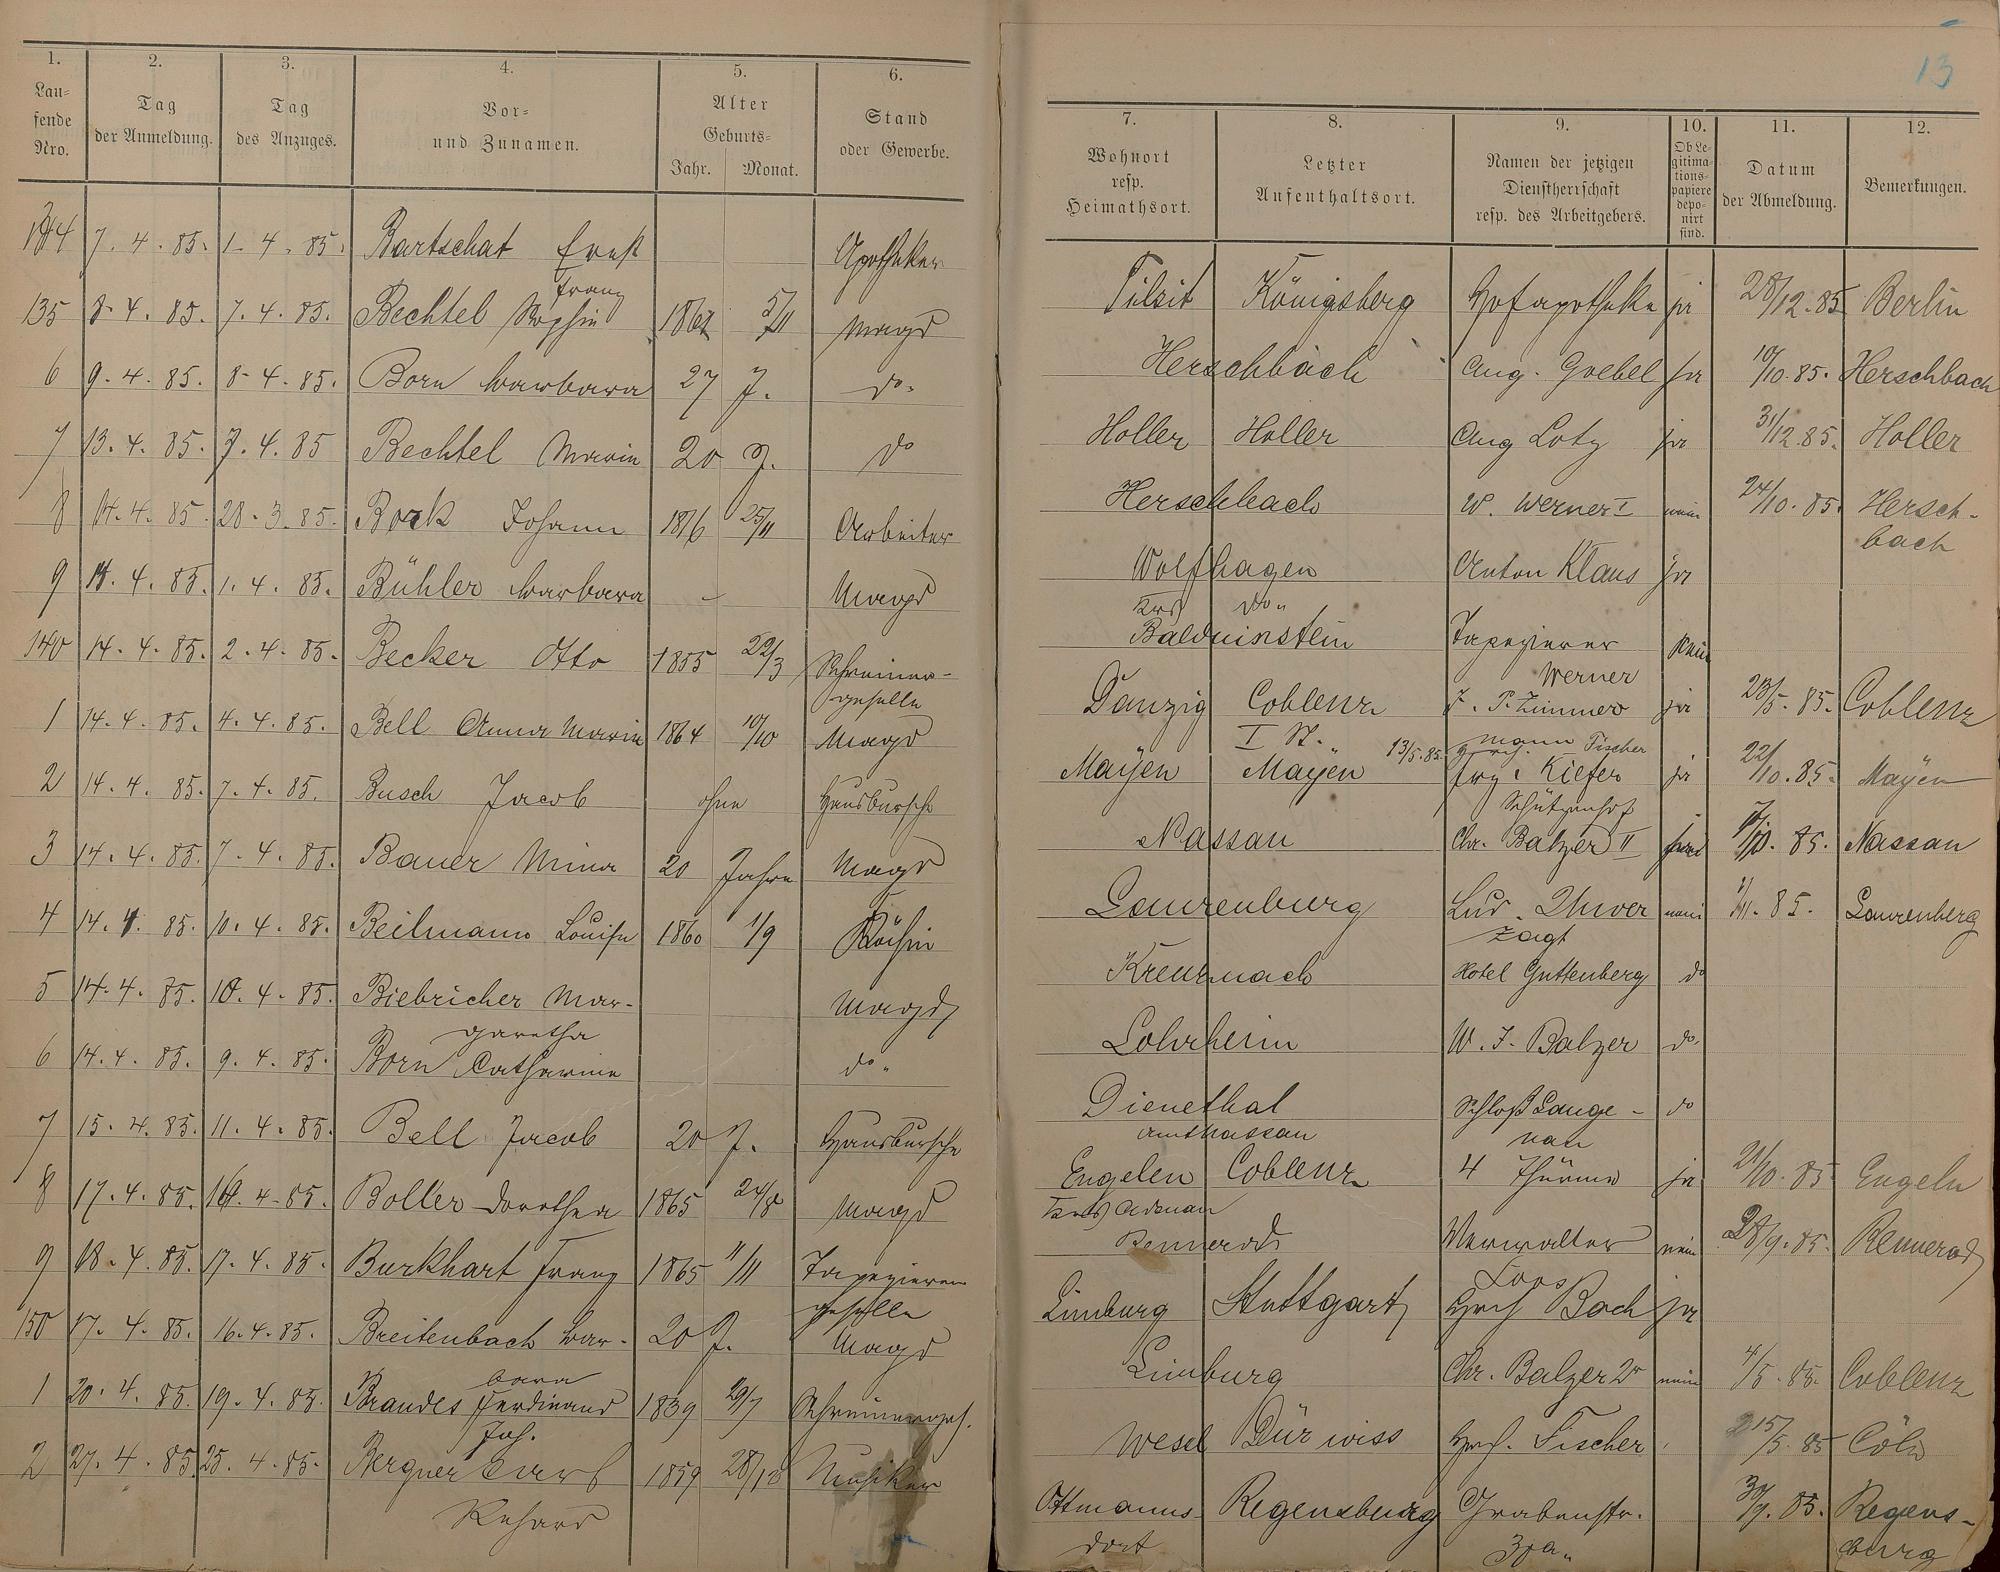 13
1. 2. 3. 4. 5. 6.
Lau-
fende
Nro.
Tag
der Anmeldung.
Tag
des Anzuges.
Vor-
und Zunamen.
Alter
Geburts-
Jahr. Monat.
Stand
oder Gewerbe.
7. 8. 9. 10. 11. 12.
Wohnort
resp.
Heimathsort.
Letzter
Aufenthaltsort.
Namen der jetzigen
Dienstherrschaft
resp. des Arbeitgebers.
Ob Le-
gitima-
tions-
papiere
depo-
nirt
sind.
Datum
der Abmeldung.
Bemerkungen.
7. 4. 85. 1. 4. 85. Bartschat Ernst Apotheker
Franz
135 8. 4. 85. 7. 4. 85. Bechtel Sophie 5/11 Magd
6 9. 4. 85. 8. 4. 85. Born Barbara 27 J. do.
7 13. 4. 85. 7. 4. 85 Bechtel Maria 20 J. do
8 14. 4. 85. 28. 3. 85. Bock Johann 25/11 Arbeiter
9 14. 4. 85. 1. 4. 85. Bühler Barbara - Magd
140 14. 4. 85. 2. 4. 85. Becker Otto 1855 22/3 Schreiner-
geselle
1 14. 4. 85. 4. 4. 85. Bell Anna Maria 1864 10/10 Magd
2 14. 4. 85. 7. 4. 85. Busch Jacob ohne Hausbursche
3 14. 4. 85. 7. 4. 85. Bauer Mina 20 Jahre Magd
4 14. 4. 85. 10. 4. 85. Beilmann Louise 1860 1/9 Köchin
5 14. 4. 85. 10. 4. 85. Biebricher Mar- Magd
garetha
6 14. 4. 85. 9. 4. 85. Born Catharina do.
7 15. 4. 85. 11. 4. 85. Bell Jacob 20 J. Hausbursche
8 17. 4. 85. 16. 4. 85. Boller Dorothea 1865 24/8 Magd
9 18. 4. 85. 17. 4. 85. Burkhart Franz 1865 11/11 Tapezierer
geselle
150 17. 4. 85. 16. 4. 85. Breitenbach Bar- 20 J. Magd
bara
1 20. 4. 85. 19. 4. 85. Brandes Ferdinand 1839 29/7 Schreinerges.
Joh.
2 27. 4. 85. 25. 4. 85. Bergner Carl 1859 28/12 Musiker
Tilsit Königsberg Hofapotheke ja 28/12. 85 Berlin
Herschbach Aug. Goebel ja 10/10. 85. Herschbach
Holler Holler Aug Lotz ja 31/12 85. Holler
Herschbach W. Werner I nein 24/10. 85. Hersch-
bach
Wolfhagen Anton Klaus ja
do.
Balduinstein Tapezierer nein
Werner
Danzig Coblenz J. P. Zimmer ja 23/5. 85. Coblenz
mann Fischer
Mayen Mayen 13/5. 85. Kiefer ja 22/10. 85. Mayen
Schützenhof
Nassau Chr. Balzer II 85. Nassau
Laurenburg Lud. nein 1/11. 85. Laurenberg
Kreuznach Hotel Guttenberg do
Lohrheim W. J. Balzer do.
Dienethal Schloß Lange- do
Amt Nassau nau
Engelen Coblenz 4 Thürme ja 21/10. 85. Engeln
Kreis Adenau
Rennerod Verwalter nein 28/9. 85. Rennerod
Loos
Limburg Stuttgart Bach ja
Limburg Chr. Balzer 2r nein 4/5. 85. Coblenz
Wesel Dürwiss Fischer 15/5. 85 Cöln
Ottmanns- Regensburg Grabenstr. 30/9. 85. Regens-
dorf burg